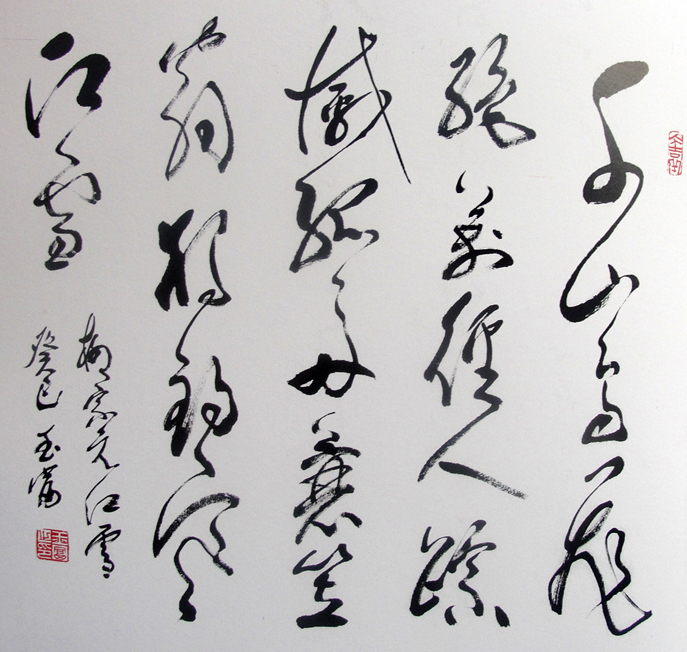 千山鳥飛
絕萬徑人踪
滅孤舟蓑笠
翁独釣寒
江雪
柳宗元江雪
癸巳